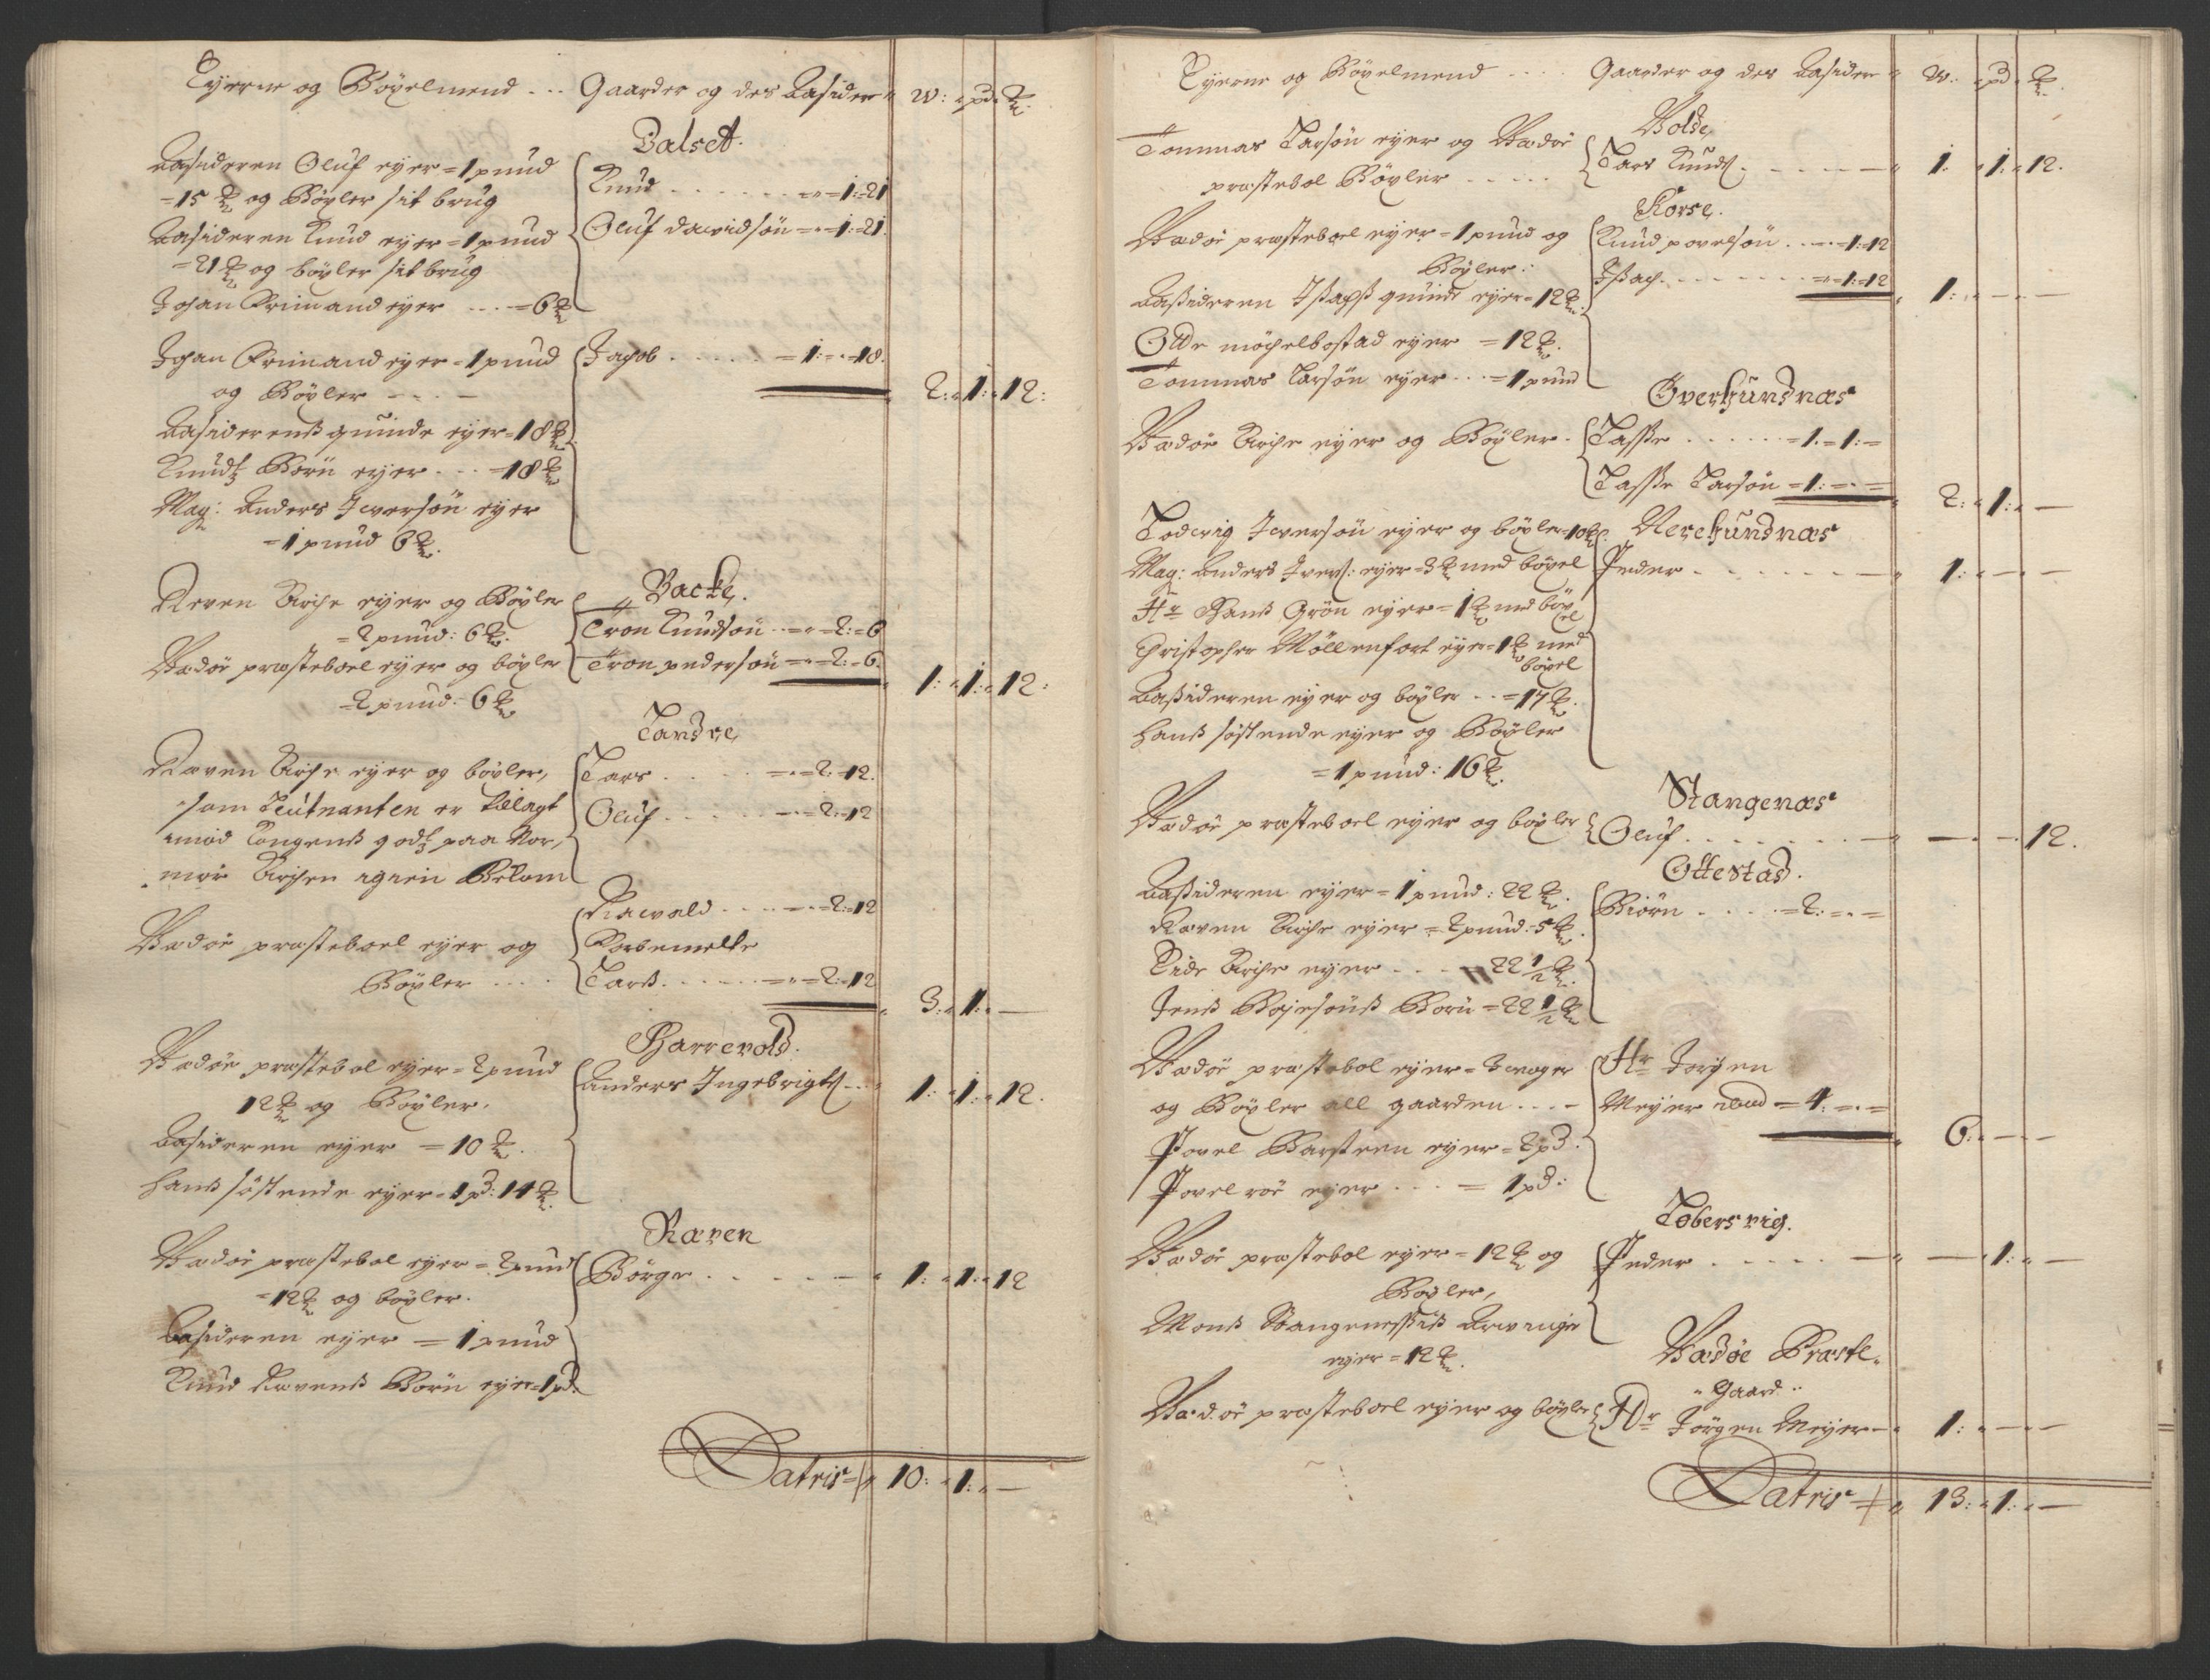 Eyerne og Böxelmend ... Gaarder og des Lasider W: pd: ℔
Balset.
Lasideren Oluf eyer = 1 pund
= 15 ℔ og Böxler sit brug
Lasideren Knud eyer = 1 pund
= 21 ℔ og böxler sit brug
Johan Frimand eyer ... = 6 ℔
Knud ....... = " = 1: = 21
Oluf davidsön = " = 1: = 21.
Johan Frimand eyer = 1 pund
og Böxler - - . -
Lasiderenß quinde eyer = 18 ℔
Knudtz Börn eyer ... = 18 ℔
Mag: Anders Iversön eyer
= 1 pund 6 ℔.
Jacob ..... = 1: = " = 18.
2: " 1: " 12:
Backe.
Reven Kirche eyer og Böxler
= 2 pund: 6 ℔.
Vedöe presteboel eyer og böxler
= 2 pund: 6 ℔
Tron Knudsön .. = " = 2: = 6
Tron pedersön = " = 2: = 6.
1: " 1: " 12:
Landre
Raven Kirche eyer og böxler,
som Leutnanten er tillagt
imod Kongenß godtz paa Nor,
mör Kirchen igien Bekom
Lars ..... = " = 2: = 12.
Oluf ..... = " = 2: = 12
Vedöe presteboel eyer og
Böxler ....
Ravald .... = " = 2: = 12
Korbemelte
Larß ..... = " = 2: = 12
3: " 1: " —
Harrevold.
Vedöe prestebol eyer = 2 pund
12 ℔ og Böxler.
Lasideren eyer = 10 ℔.
Hanß söstende eyer = 1 pd: 14 ℔
Anders Ingebrigts ... 1: " 1: " 12.
Raven
Vedöe prestebol eyer = 2 pund
= 12 ℔ og böxler.
Lasideren eyer = 1 pund
Knud Ravenß Börn eyer = 1 pd.
Börge ..... — " 1: " 1: " 12
Latris = " 10: " 1: " —
Eyerne og Böxelmend .... Gaarder og des Lasider " W: " pd " ℔.
Volde
Tommas Larsön eyer og Vedöe
prestebol Böxler .....
Lars Knuds. ---- " 1: " 1: " 12.
Korse.
Vedöe presteboel eyer = 1 pund og
Böxler:
Laßideren Ißachß quinde eyer = 12 ℔.
Otte möchelbostad eyer = 12 ℔.
Tommas Larsön eyer ... = 1 pund
Knud povelsön ... = 1: = 12
Ißach ....... = " = 1: = 12
1: " — " —
Överhundnæs
Vedöe Kirche eyer og Böxler.
Lasße ...... = 1. = 1: =
Lasße Larsön = 1: = " =
2: " 1: " —
Nerehundnæs
Lodvig Iversön eyer og böxler = 10 ℔.
Mag: Anders Ivers: eyer = 3 ℔ med böxel
Hr Hanß Grön eyer = 1 ℔ med böx
el
Christopher Möllenfort eyer = 1 ℔ med
böxel
Laßideren eyer og böxler .. = 17 ℔.
Hanß söstende eyer og Böxler
= 1 pund: 16 ℔.
Peder ....... — " 1: " — " —
Stangenæs
Vedöe presteboel eyer og böxler
Oluf ....... — " — " — " 12.
Ottestad.
Laßideren eyer = 1 pund: 22 ℔.
Raven Kirche eyer = 2 pund: 5 ℔.
Eide Kirche eyer ... = 22 1/2 ℔.
Jenß Bojesönß Börn = 22 1/2 ℔
Biörn ..... = 2: = " =
Vedöe prestebol eyer = 3 voger
og Böxler all gaarden ... -
Povel Karsteen eyer = 2 pd:
Povel roe eyer ... = 1 pd:
Hr Jörgen
Meyer ibid = 4: = " =
6: " — " —
Lobersvig.
Vedöe prestebol eyer = 12 ℔ og
Böxler,
Monß Stangeneßiß Arvinger
eyer = 12 ℔.
Peder ..... — " — " 1: " —
Vedöe Præste,
" Gaard "
Vedöe prestebol eyer og böxler
Hr Jörgen Meyer — " 1: " — " —
Latris = " 13: " 1: " —